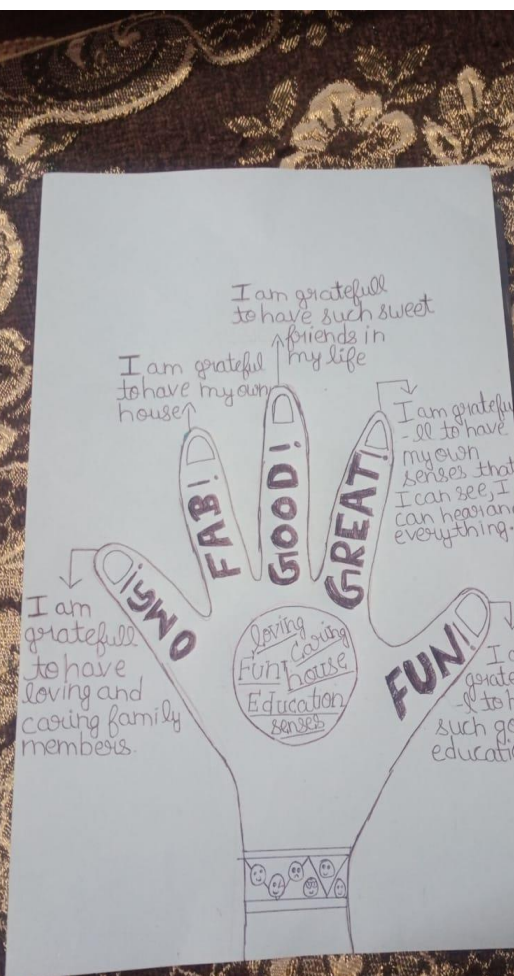 I am gratefull
to have such sweet
friends in
my life
I am grateful
to have my own
house
I am gratefu
-ll to have
my own
senses that
I can see, I
can hear and
everything.
I am
gratefull
to have
loving and
caring family
members.
OMG!
FAB!
GOOD!
GREAT!
FUN!
loving
Caring
Fun house
Education
senses
I
grate
to h
such go
educati